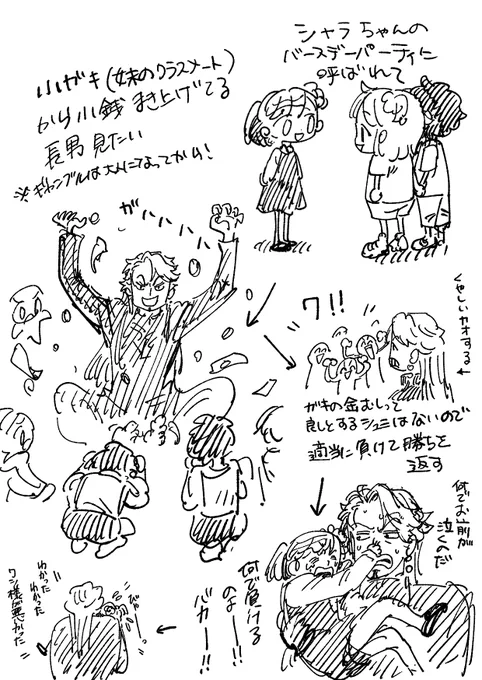 シャラちゃんの
バースデーパーティに
呼ばれて
小ガキ(妹のクラスメート)
から小銭まき上げてる
長男見たい
※ギャンブルは大人になってから!
ガハハハハ
ワ!!
くやしいカオする↑
ガキの金むしって
良しとするシュミはないので
適当に負けて勝ちを
返す
何でお前が
泣くのだ
何で負ける
のよー!!
バカー!!
わかった
わかった
ワシ様が悪かった